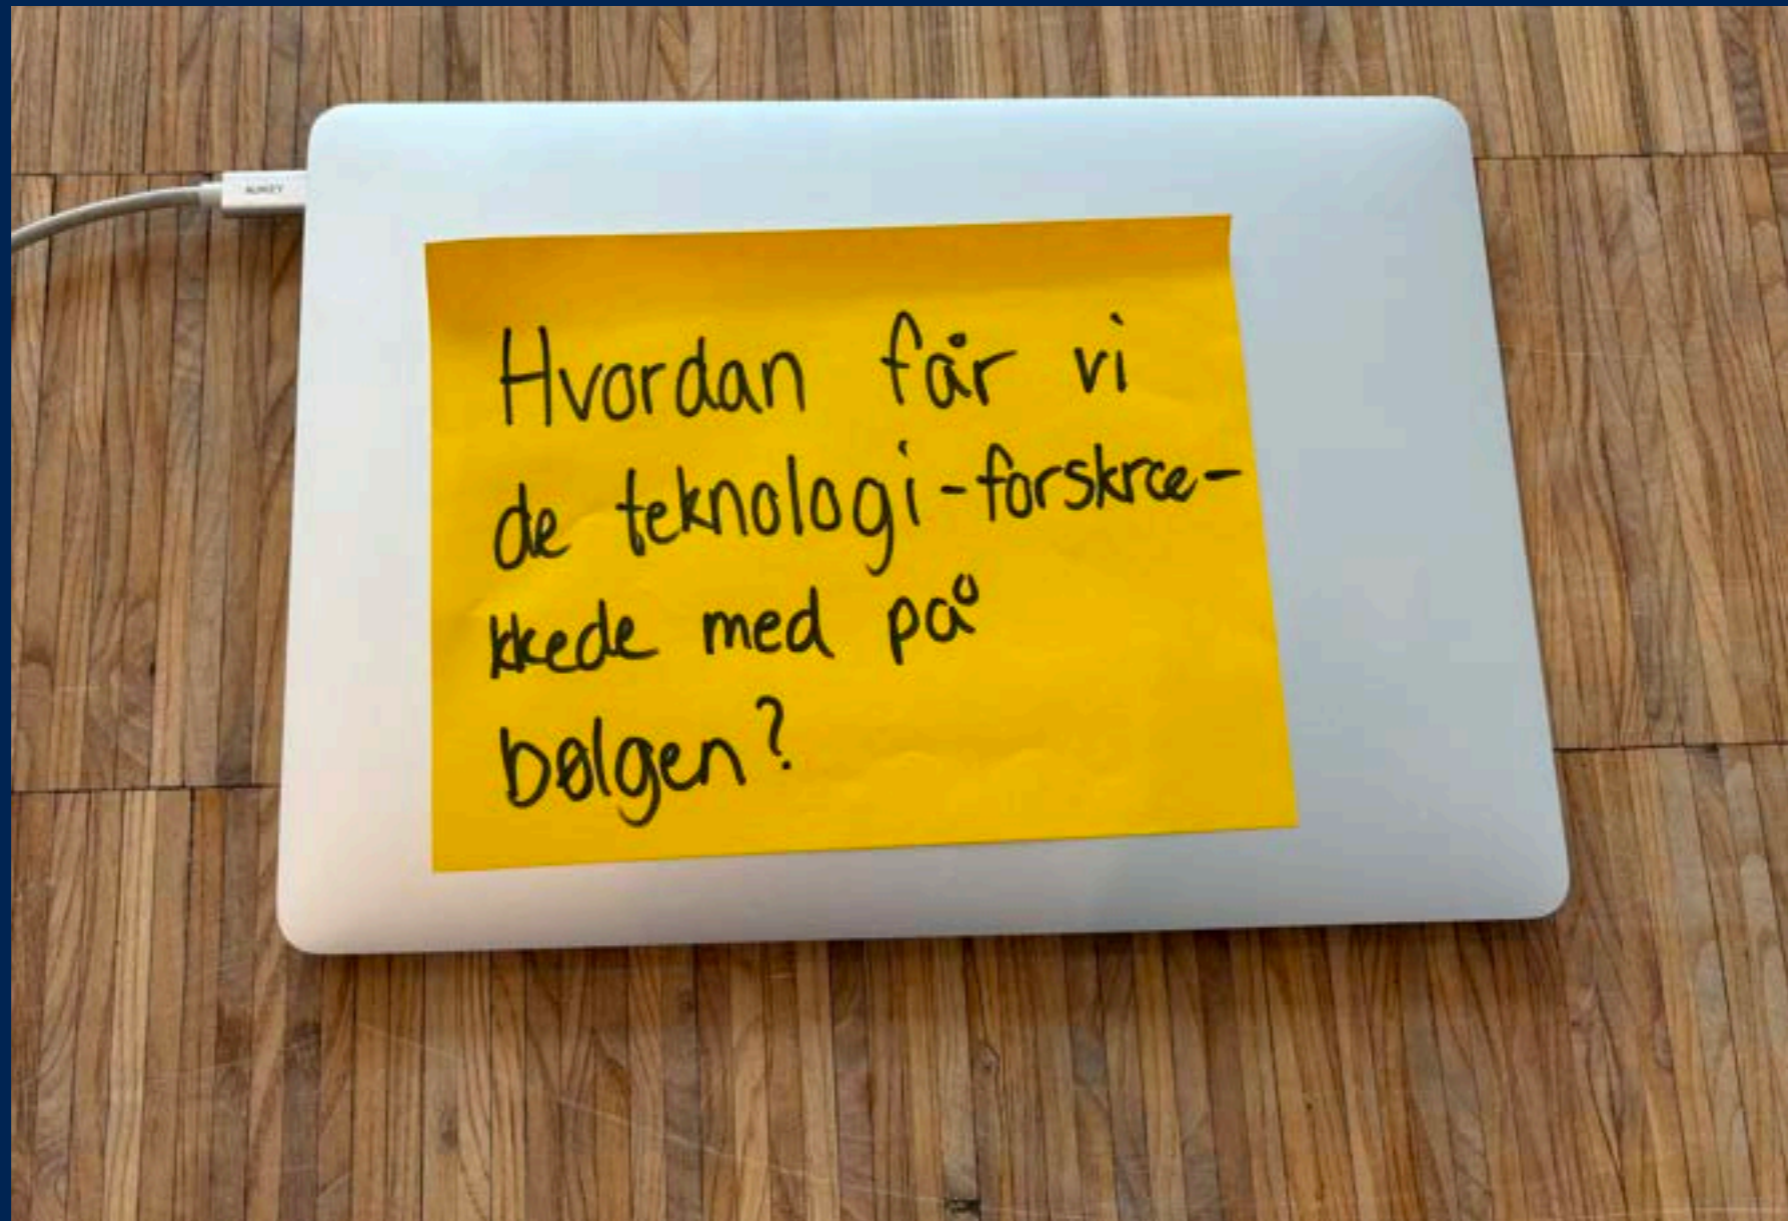 AUKEY
Hvordan får vi
de teknologi-forskræ-
kkede med på
bølgen?